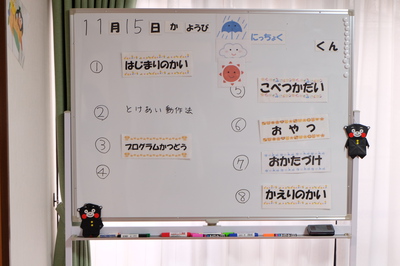 11月15日 か ようび
にっちょく
くん
① はじまりのかい
② とけあい動作法
③ プログラムかつどう
④
⑤ こべつかだい
⑥ おやつ
⑦ おかたづけ
⑧ かえりのかい